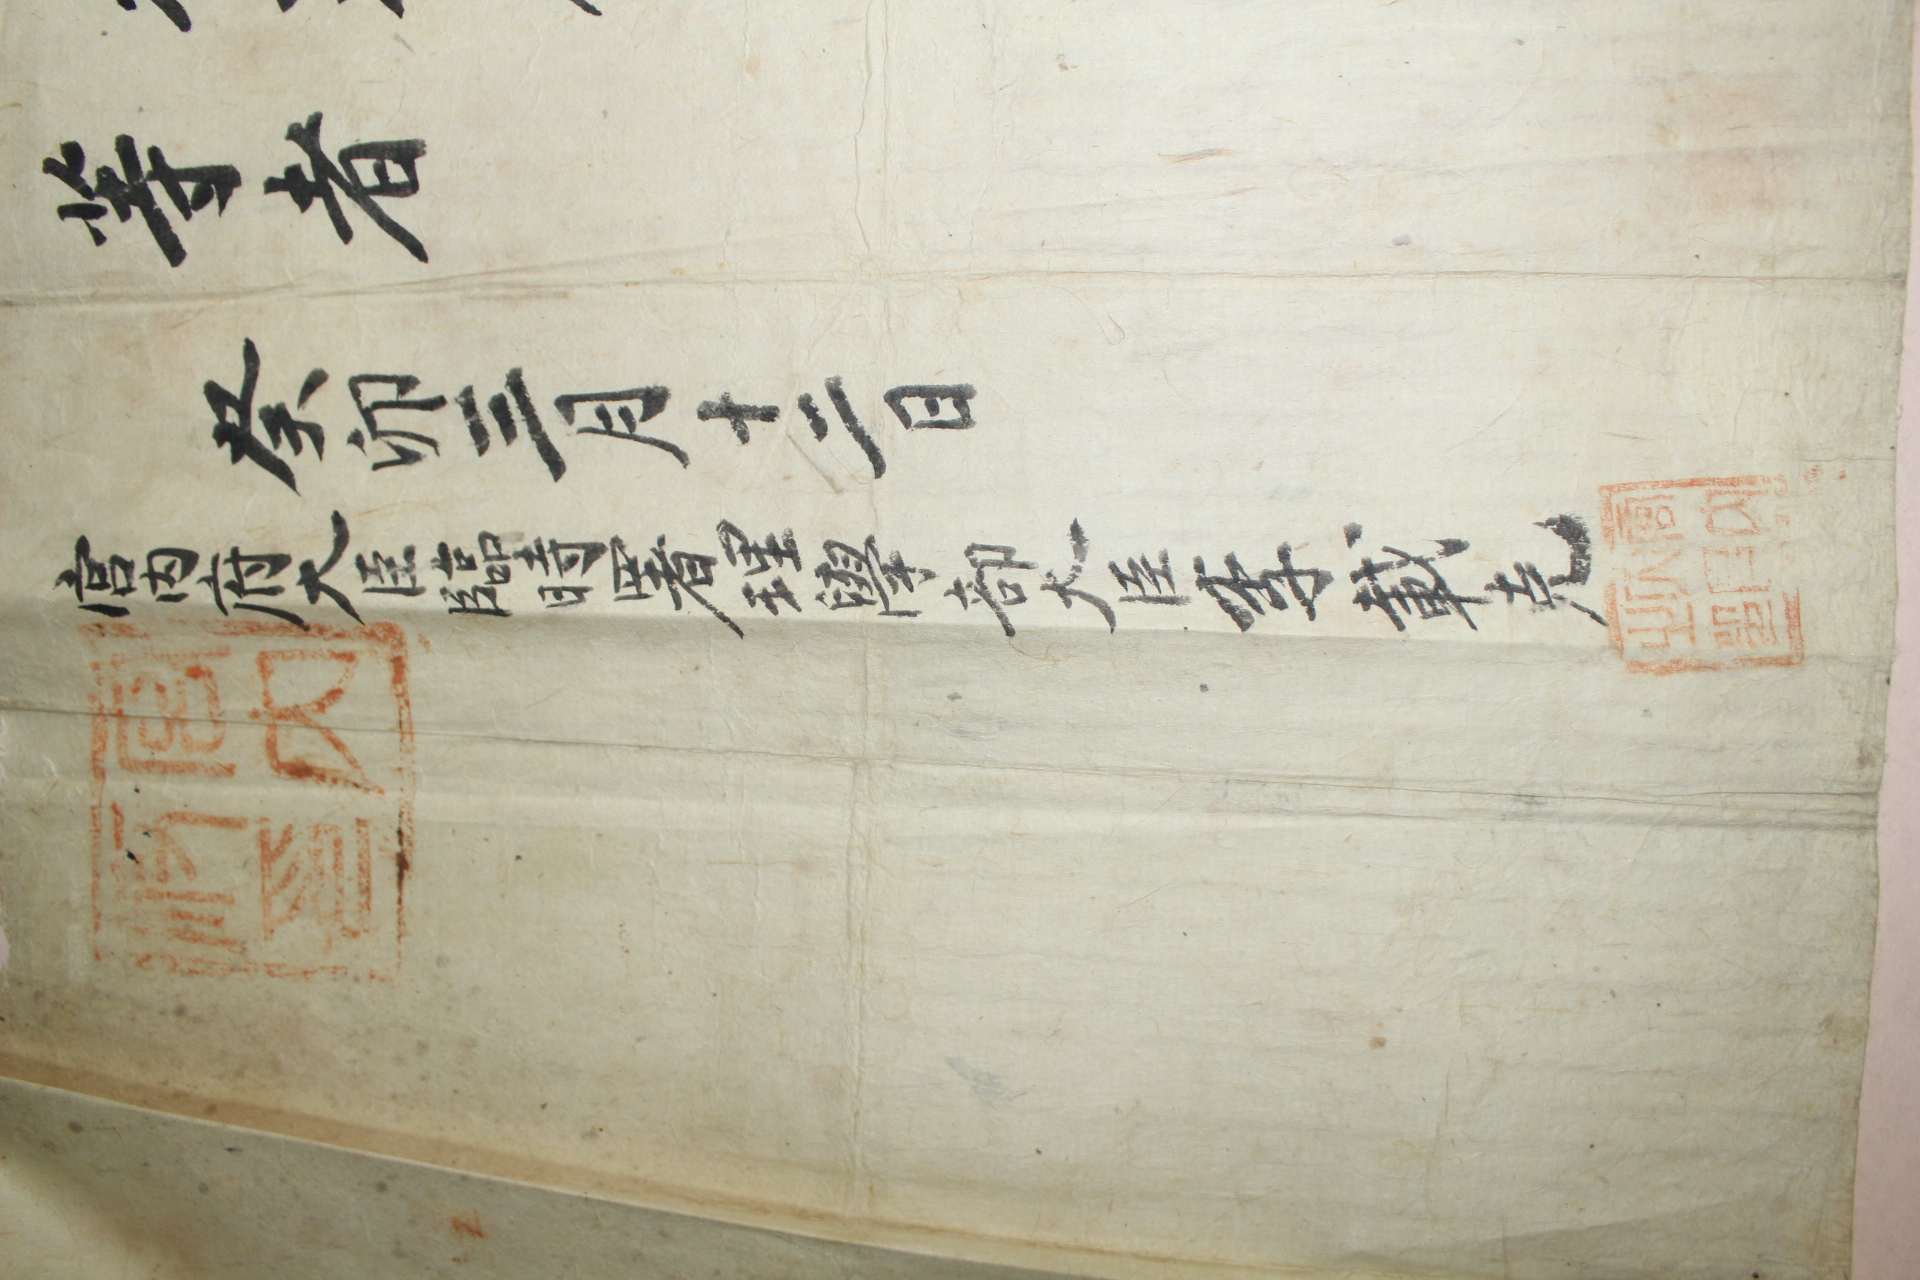 等者
癸卯三月十二日
宮內府大臣臨時署理學部大臣李載克